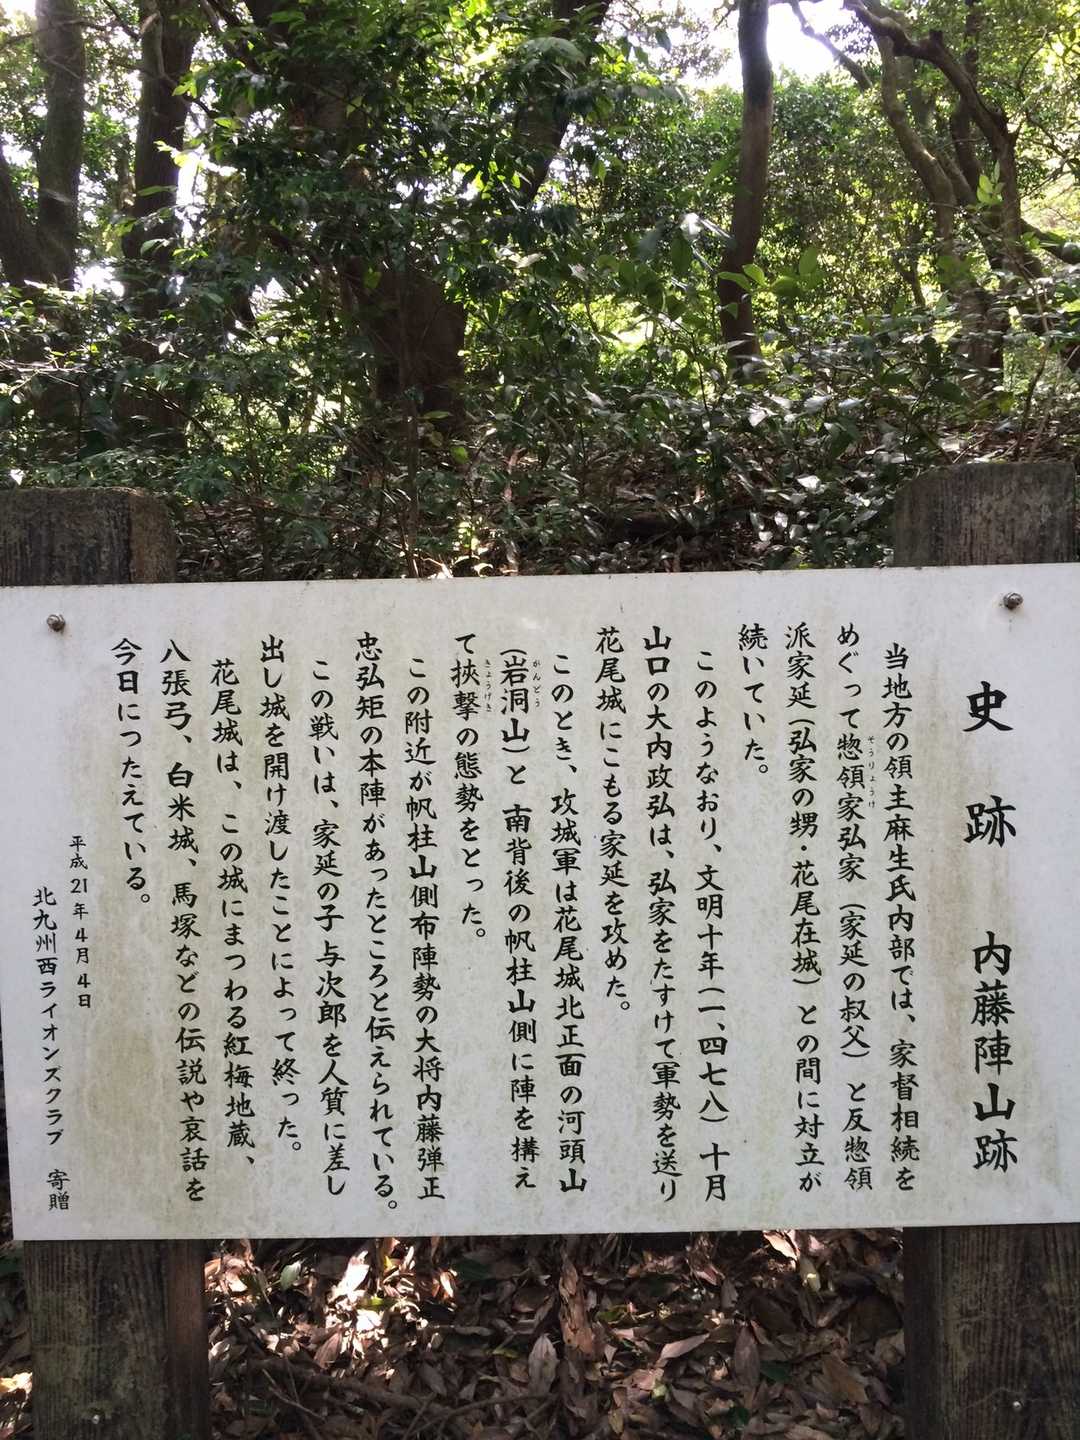 史跡 内藤陣山跡
当地方の領主麻生氏内部では、家督相続を
めぐって惣領家弘家（家延の叔父）と反惣領
そうりょうけ
派家延（弘家の甥・花尾在城）との間に対立が
続いていた。
このようなおり、文明十年（一、四七八）十月
山口の大内政弘は、弘家をたすけて軍勢を送り
花尾城にこもる家延を攻めた。
このとき、攻城軍は花尾城北正面の河頭山
（岩洞山）と 南背後の帆柱山側に陣を構え
がんどう
て挾撃の態勢をとった。
きょうげき
この附近が帆柱山側布陣勢の大将内藤弾正
忠弘矩の本陣があったところと伝えられている。
この戦いは、家延の子 与次郎を人質に差し
出し城を開け渡したことによって終った。
花尾城は、この城にまつわる紅梅地蔵、
八張弓、白米城、馬塚などの伝説や哀話を
今日につたえている。
平成21年4月4日
北九州西ライオンズクラブ 寄贈